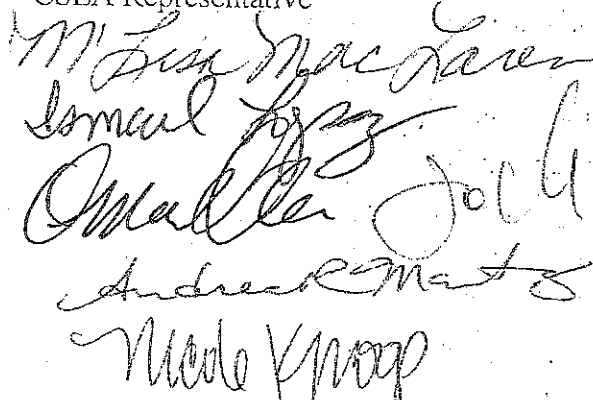 CSEA Representative
M'Lisa MacLaren
Ismael Lopez
Andrea R Martz
Nicole Knopp